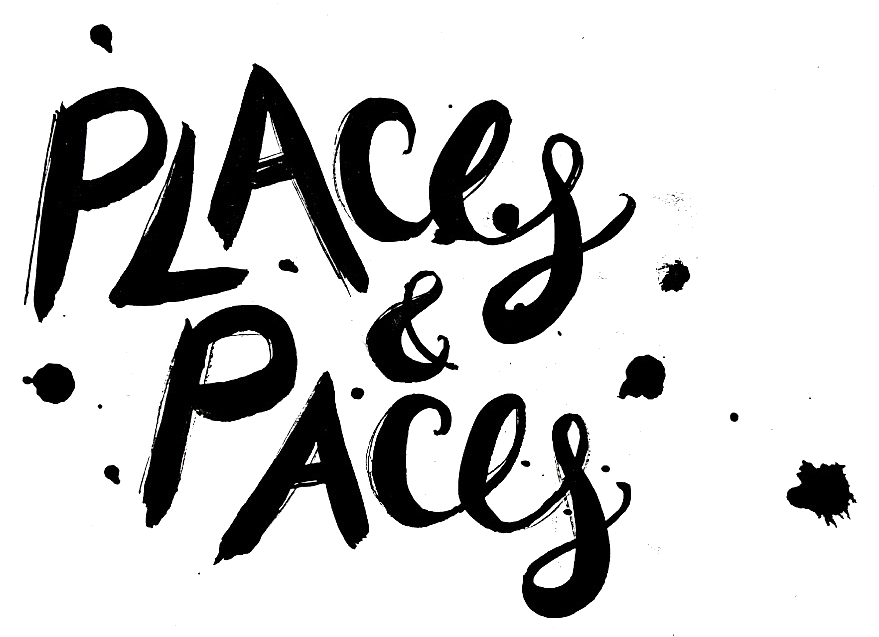 PLACes
&
PACes